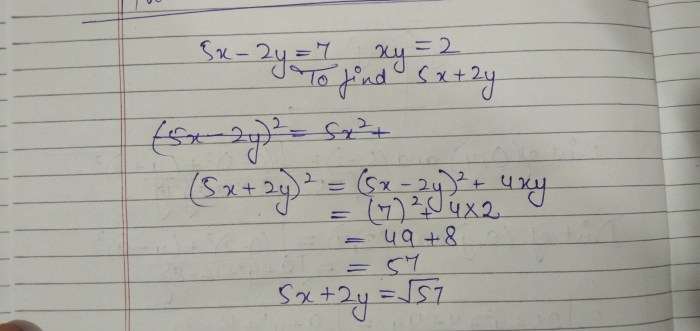 5x - 2y = 7   xy = 2
To find 5x + 2y
(5x - 2y)² = 5x² +
(5x + 2y)² = (5x - 2y)² + 4xy
= (7)² + 4×2
= 49 + 8
= 57
5x + 2y = √57